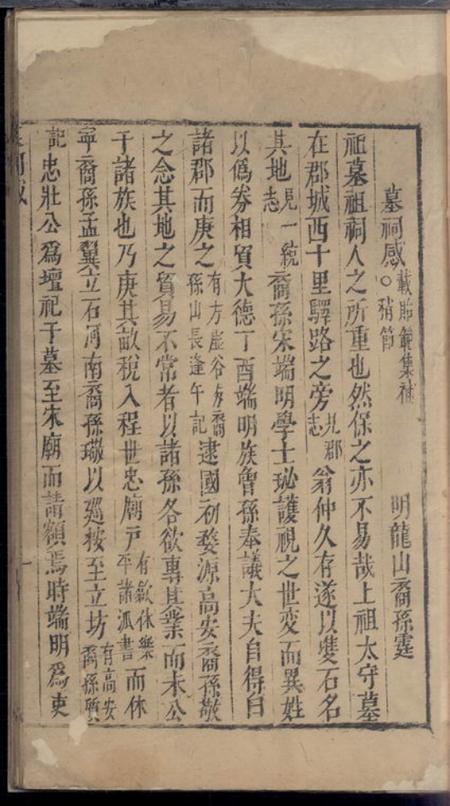 墓祠感 載貽範集補○稍節 明龍山裔孫霆
祖墓祖祠人之所重也然保之亦不易哉上祖太守墓
在郡城西十里驛路之旁見郡志翁仲久存遂以雙石名
其地見一統志裔孫宋端明學士珌護視之世變而異姓
以僞券相質大德丁酉端明族曾孫奉議大夫自得白
諸郡而庚之有方虛谷房裔孫山長逢午記逮國初婺源高安裔孫敬
之念其地之貿易不常者以諸孫各欲專其業而未公
于諸族也乃庚其畝稅入程世忠廟戶有歙休樂平諸派書而休
寧裔孫孟翼立石河南裔孫璥以廵按至立坊有高安裔孫質
記忠壯公爲壇祀于墓至宋廟而請額焉時端明爲吏